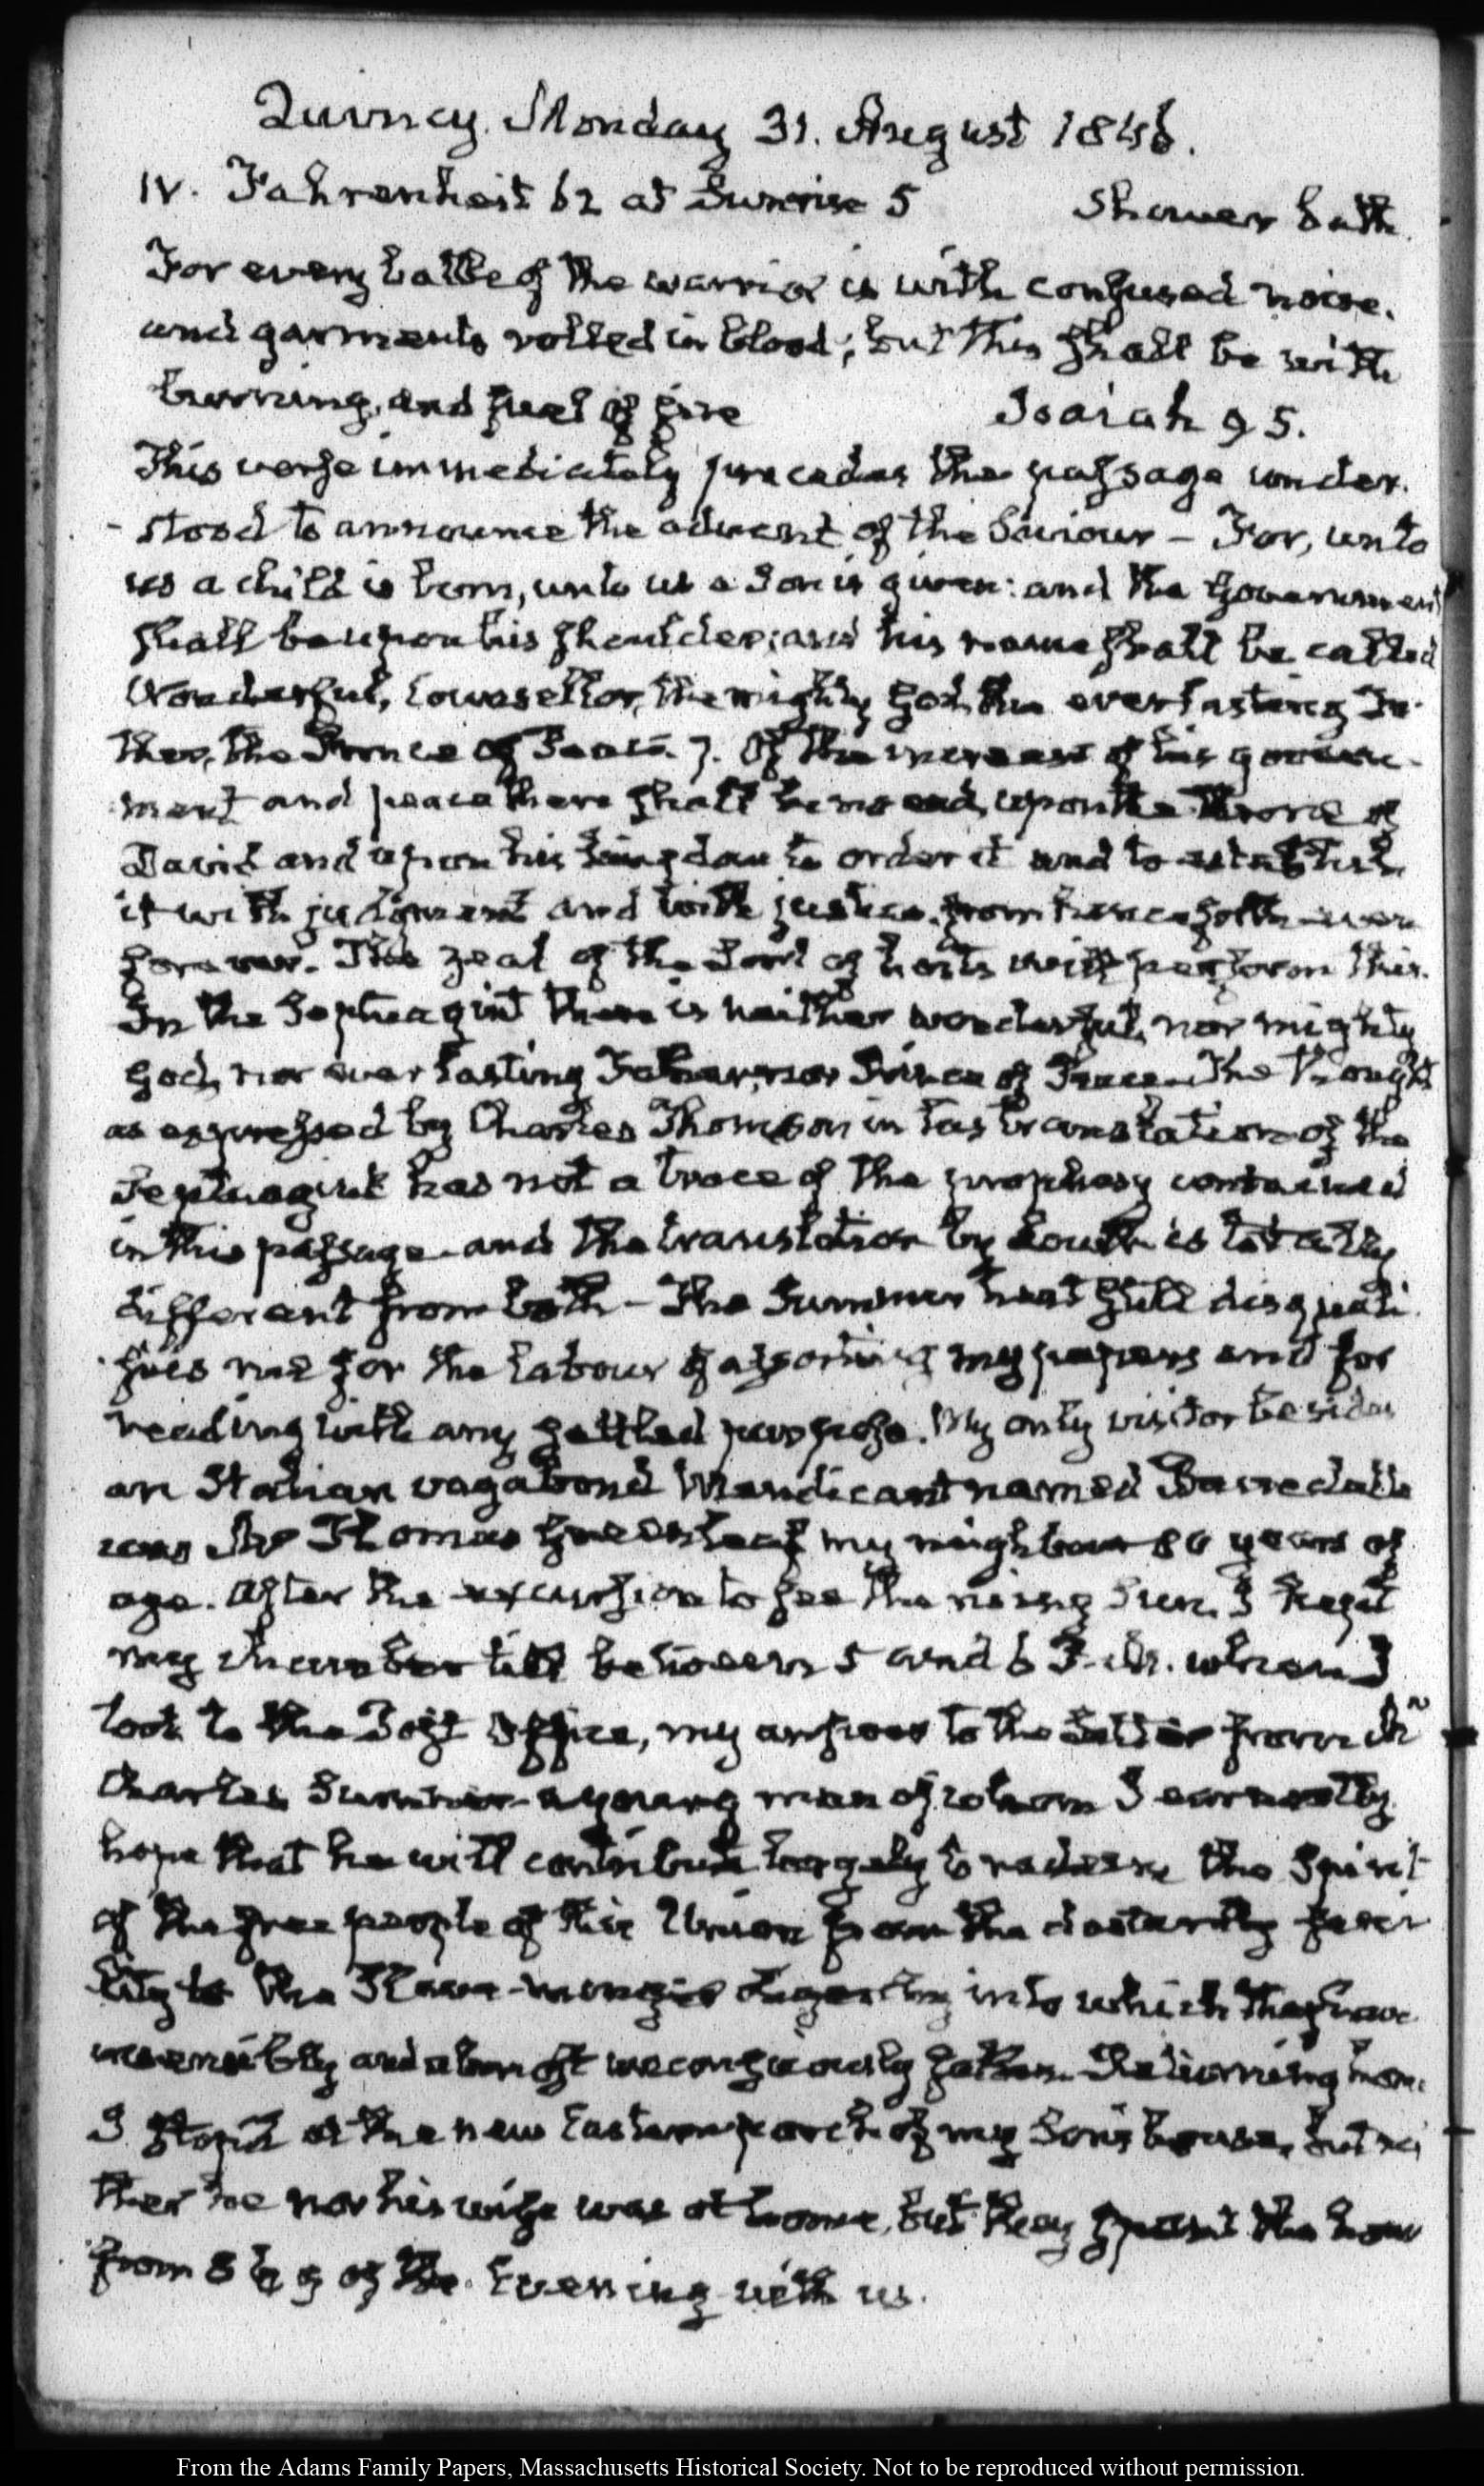 Quincy Monday 31. August 1846.
IV. Fahrenheit 62 at Sunrise 5 Shower bath.
For every battle of the warrior is with confused noise.
and garments rolled in blood; but this shall be with
burning, and fuel of fire Isaiah 9 5.
This verse immediately precedes the passage under-
-stood to announce the advent of the Saviour – For, unto
us a child is born, unto us a Son is given: and the Government
shall be upon his shoulder; and his name shall be called
Wonderful, Counsellor, the mighty God, the everlasting Fa-
ther, the Prince of Peace. 7. Of the increase of his govern-
ment and peace there shall be no end, upon the Throne of
David and upon his kingdom to order it and to establish
it with judgment and with justice, from henceforth even
forever. The zeal of the Lord of hosts will perform this.
In the Septuagint there is neither wonderful, nor mighty
God, nor everlasting Father, nor Prince of Peace. The thought
as expressed by Charles Thomson in his translation of the
Septuagint has not a trace of the prophesy contained
in this passage and the translation by Lowth is totally
different from both – The Summer heat still disquali-
fies me for the labour of assorting my papers and for
reading with any settled purpose. My only visitor besides
an Italian vagabond Mendicant named
was Mr Thomas Greenleaf my neighbour 80 years of
age. After the excursion to see the rising Sun. I kept
my chamber till between 5 and 6 P.M. when I
took to the Post Office, my answer to the Letter from Mr
Charles Sumner a young man of whom I earnestly
hope that he will contribute largely to redeem the Spirit
of the free people of this Union from the dastardly servi-
lity to the Slave-monger oligarchy into which they have
insensibly and almost unconsciously fallen. Returning home
I stop'd at the new Eastern porch of my Son's house, but nei
ther he nor his wife was at home, but they spent the hour
from 8 to 9 of the Evening with us.
From the Adams Family Papers, Massachusetts Historical Society. Not to be reproduced without permission.